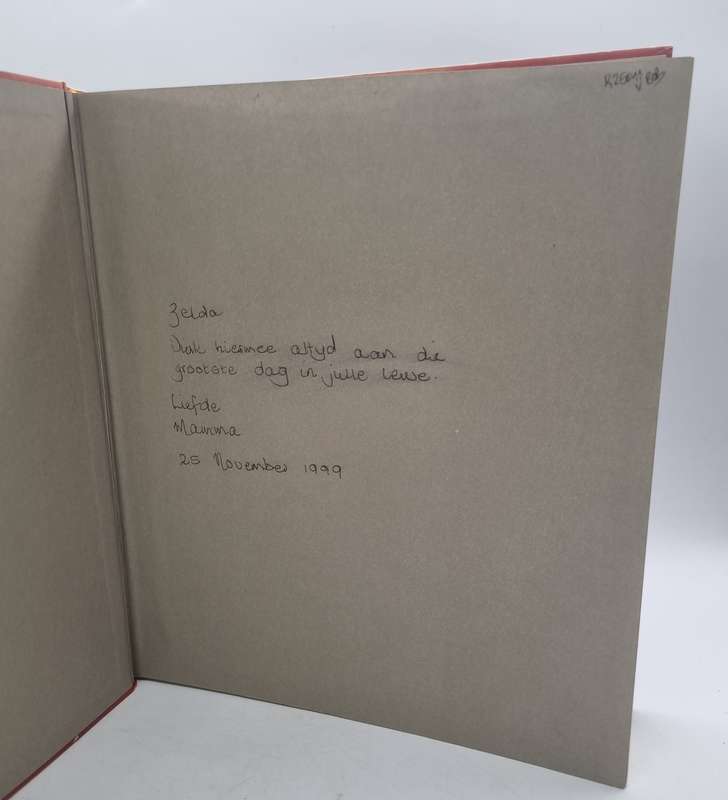 Zelda
Dink hiermee altyd aan die
grootste dag in julle lewe.
Liefde
Mamma
25 November 1999